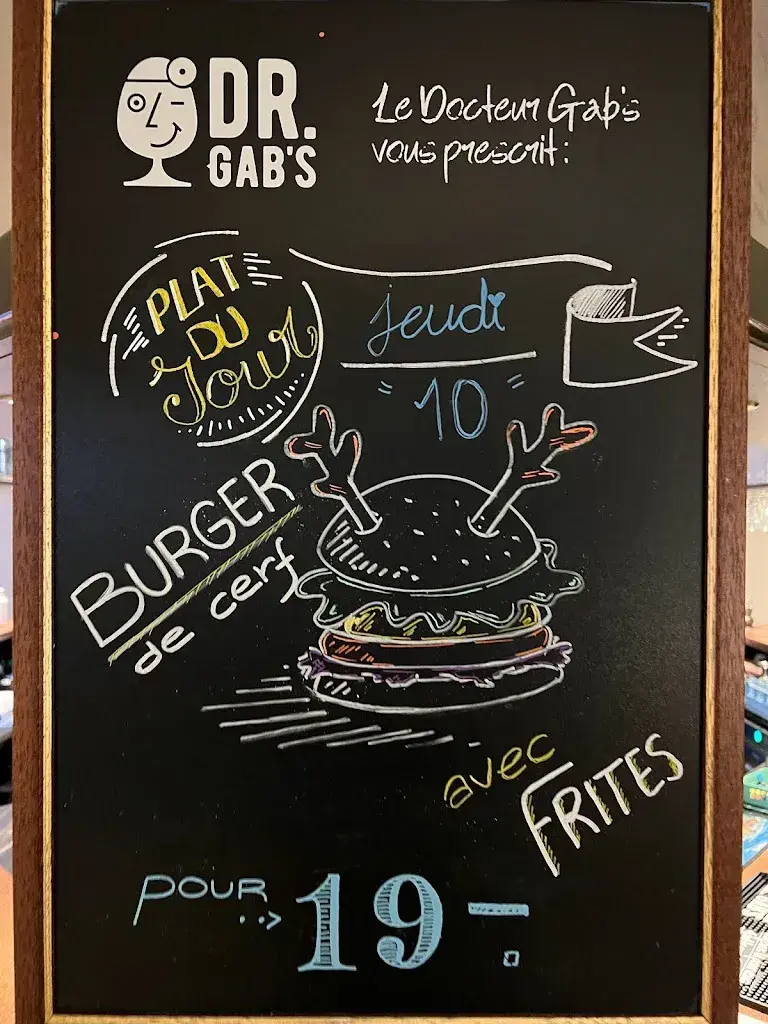 DR.
GAB'S
Le Docteur Gab's
vous prescrit :
PLAT
DU
Jour
jeudi
"10"
BURGER
de cerf
avec
FRITES
POUR
..> 19.-